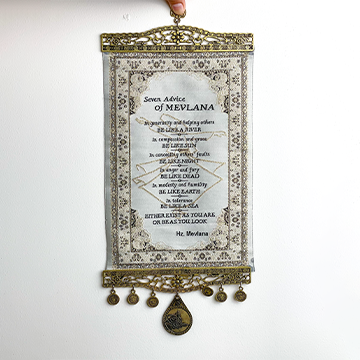 Seven Advice
of MEVLANA
In generosity and helping others
BE LIKE A RIVER
In compassion and grace
BE LIKE SUN
In concealing others' faults
BE LIKE NIGHT
In anger and fury
BE LIKE DEAD
In modesty and humility
BE LIKE EARTH
In tolerance
BE LIKE A SEA
EITHER EXIST AS YOU ARE
OR BE AS YOU LOOK
Hz. Mevlana